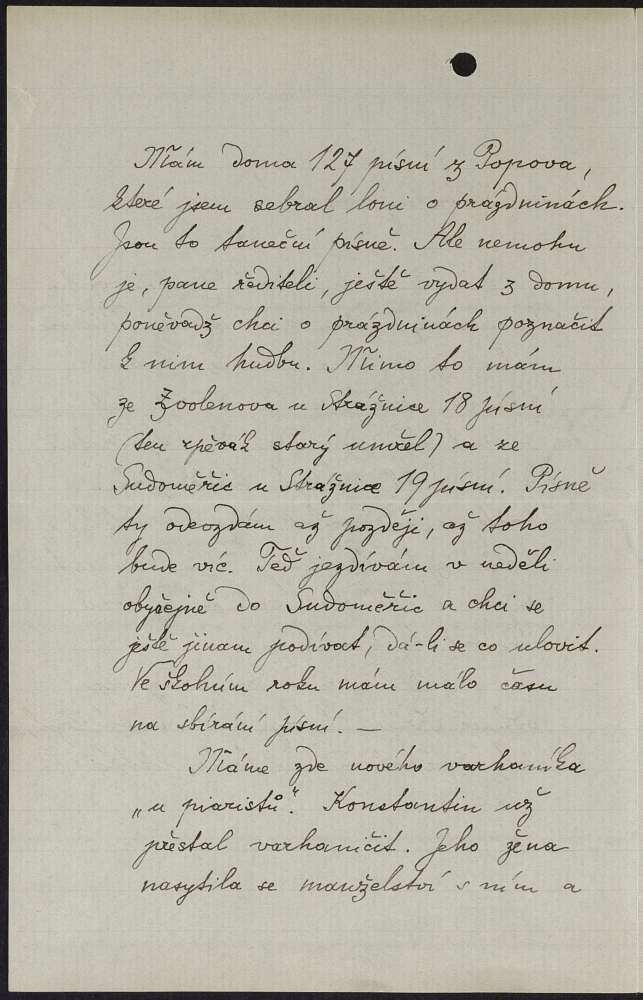 Mám doma 127 písní z Popova,
které jsem sebral loni o prázdninách.
Jsou to taneční písně. Ale nemohu
je, pane řediteli, ještě vydat z domu,
poněvadž chci o prázdninách poznačit
k nim hudbu. Mimo to mám
ze Zvolenova u Strážnice 18 písní
(ten zpěvák starý umřel) a ze
Sudoměřic u Strážnice 19 písní. Písně
ty odevzdám až později, až toho
bude víc. Teď jezdívám v neděli
obyčejně do Sudoměřic a chci se
ještě jinam podívat, dá-li se co ulovit.
Ve školním roku mám málo času
na sbírání písní. —
Máme zde nového varhaníka
„u piaristů“. Konstantin už
přestal varhaničit. Jeho žena
nasytila se manželství s ním a